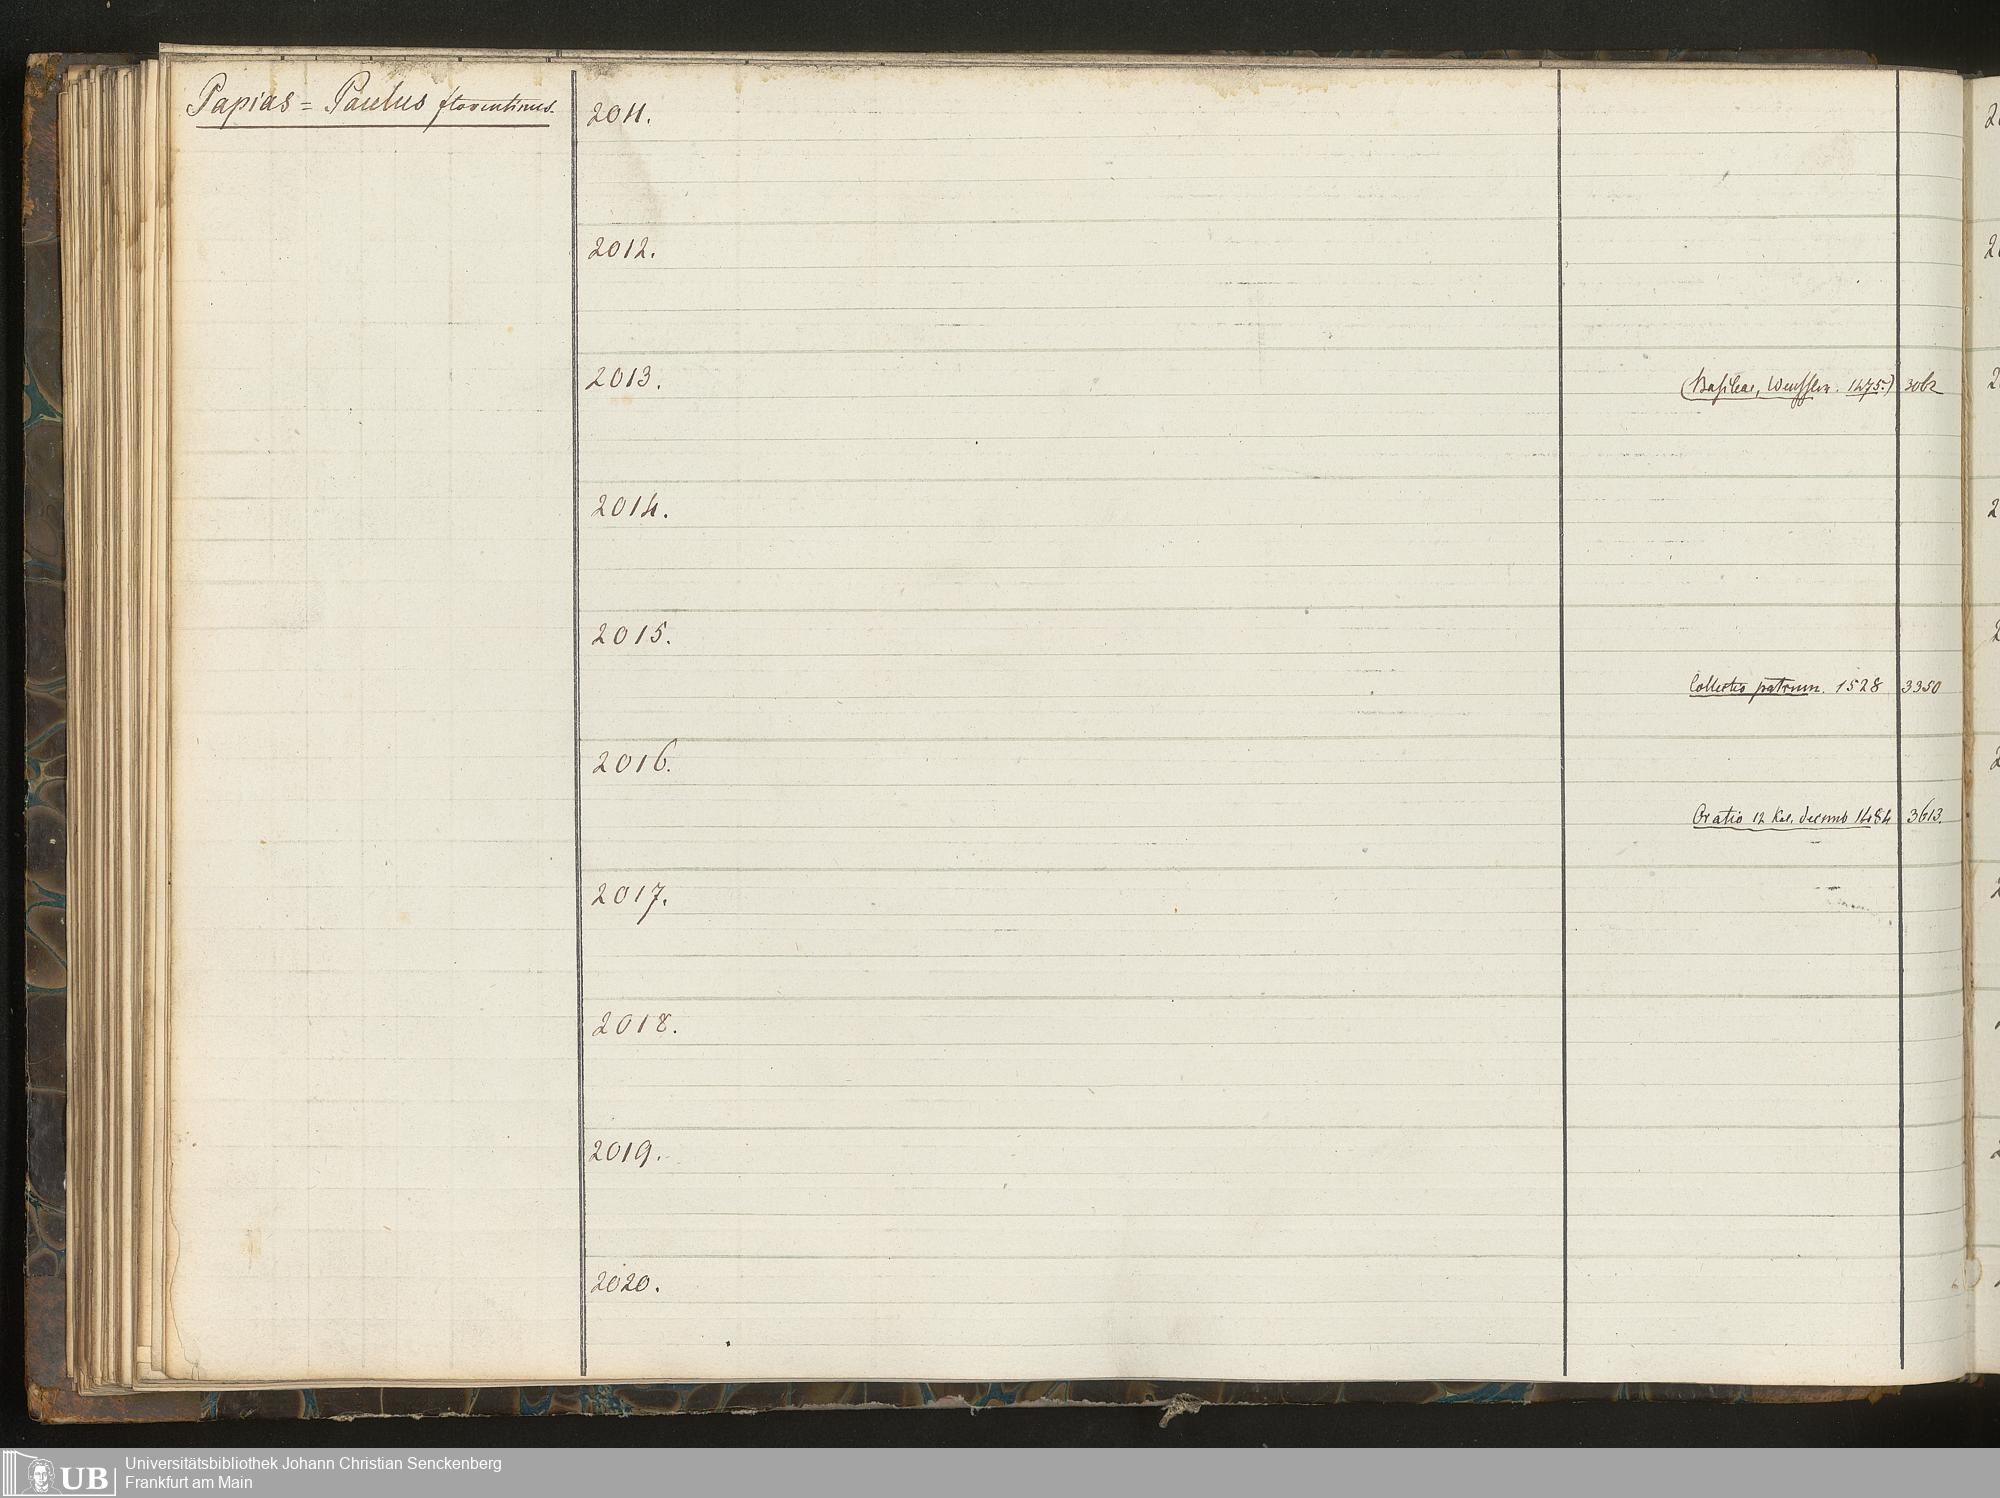 Papias = Paulus florentinus.
2011.
2012.
2013.
(Basileae, Wenssler. 1475.) 3062
2014.
2015.
Collectio patrum. 1528 3350
2016.
Oratio 12 Kal. decemb 1484 3613.
2017.
2018.
2019.
2020.
UB
Universitätsbibliothek Johann Christian Senckenberg
Frankfurt am Main